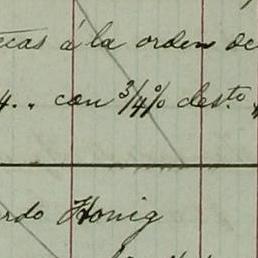 á la orden de
4.. con 3/4% desto
rdo Honig